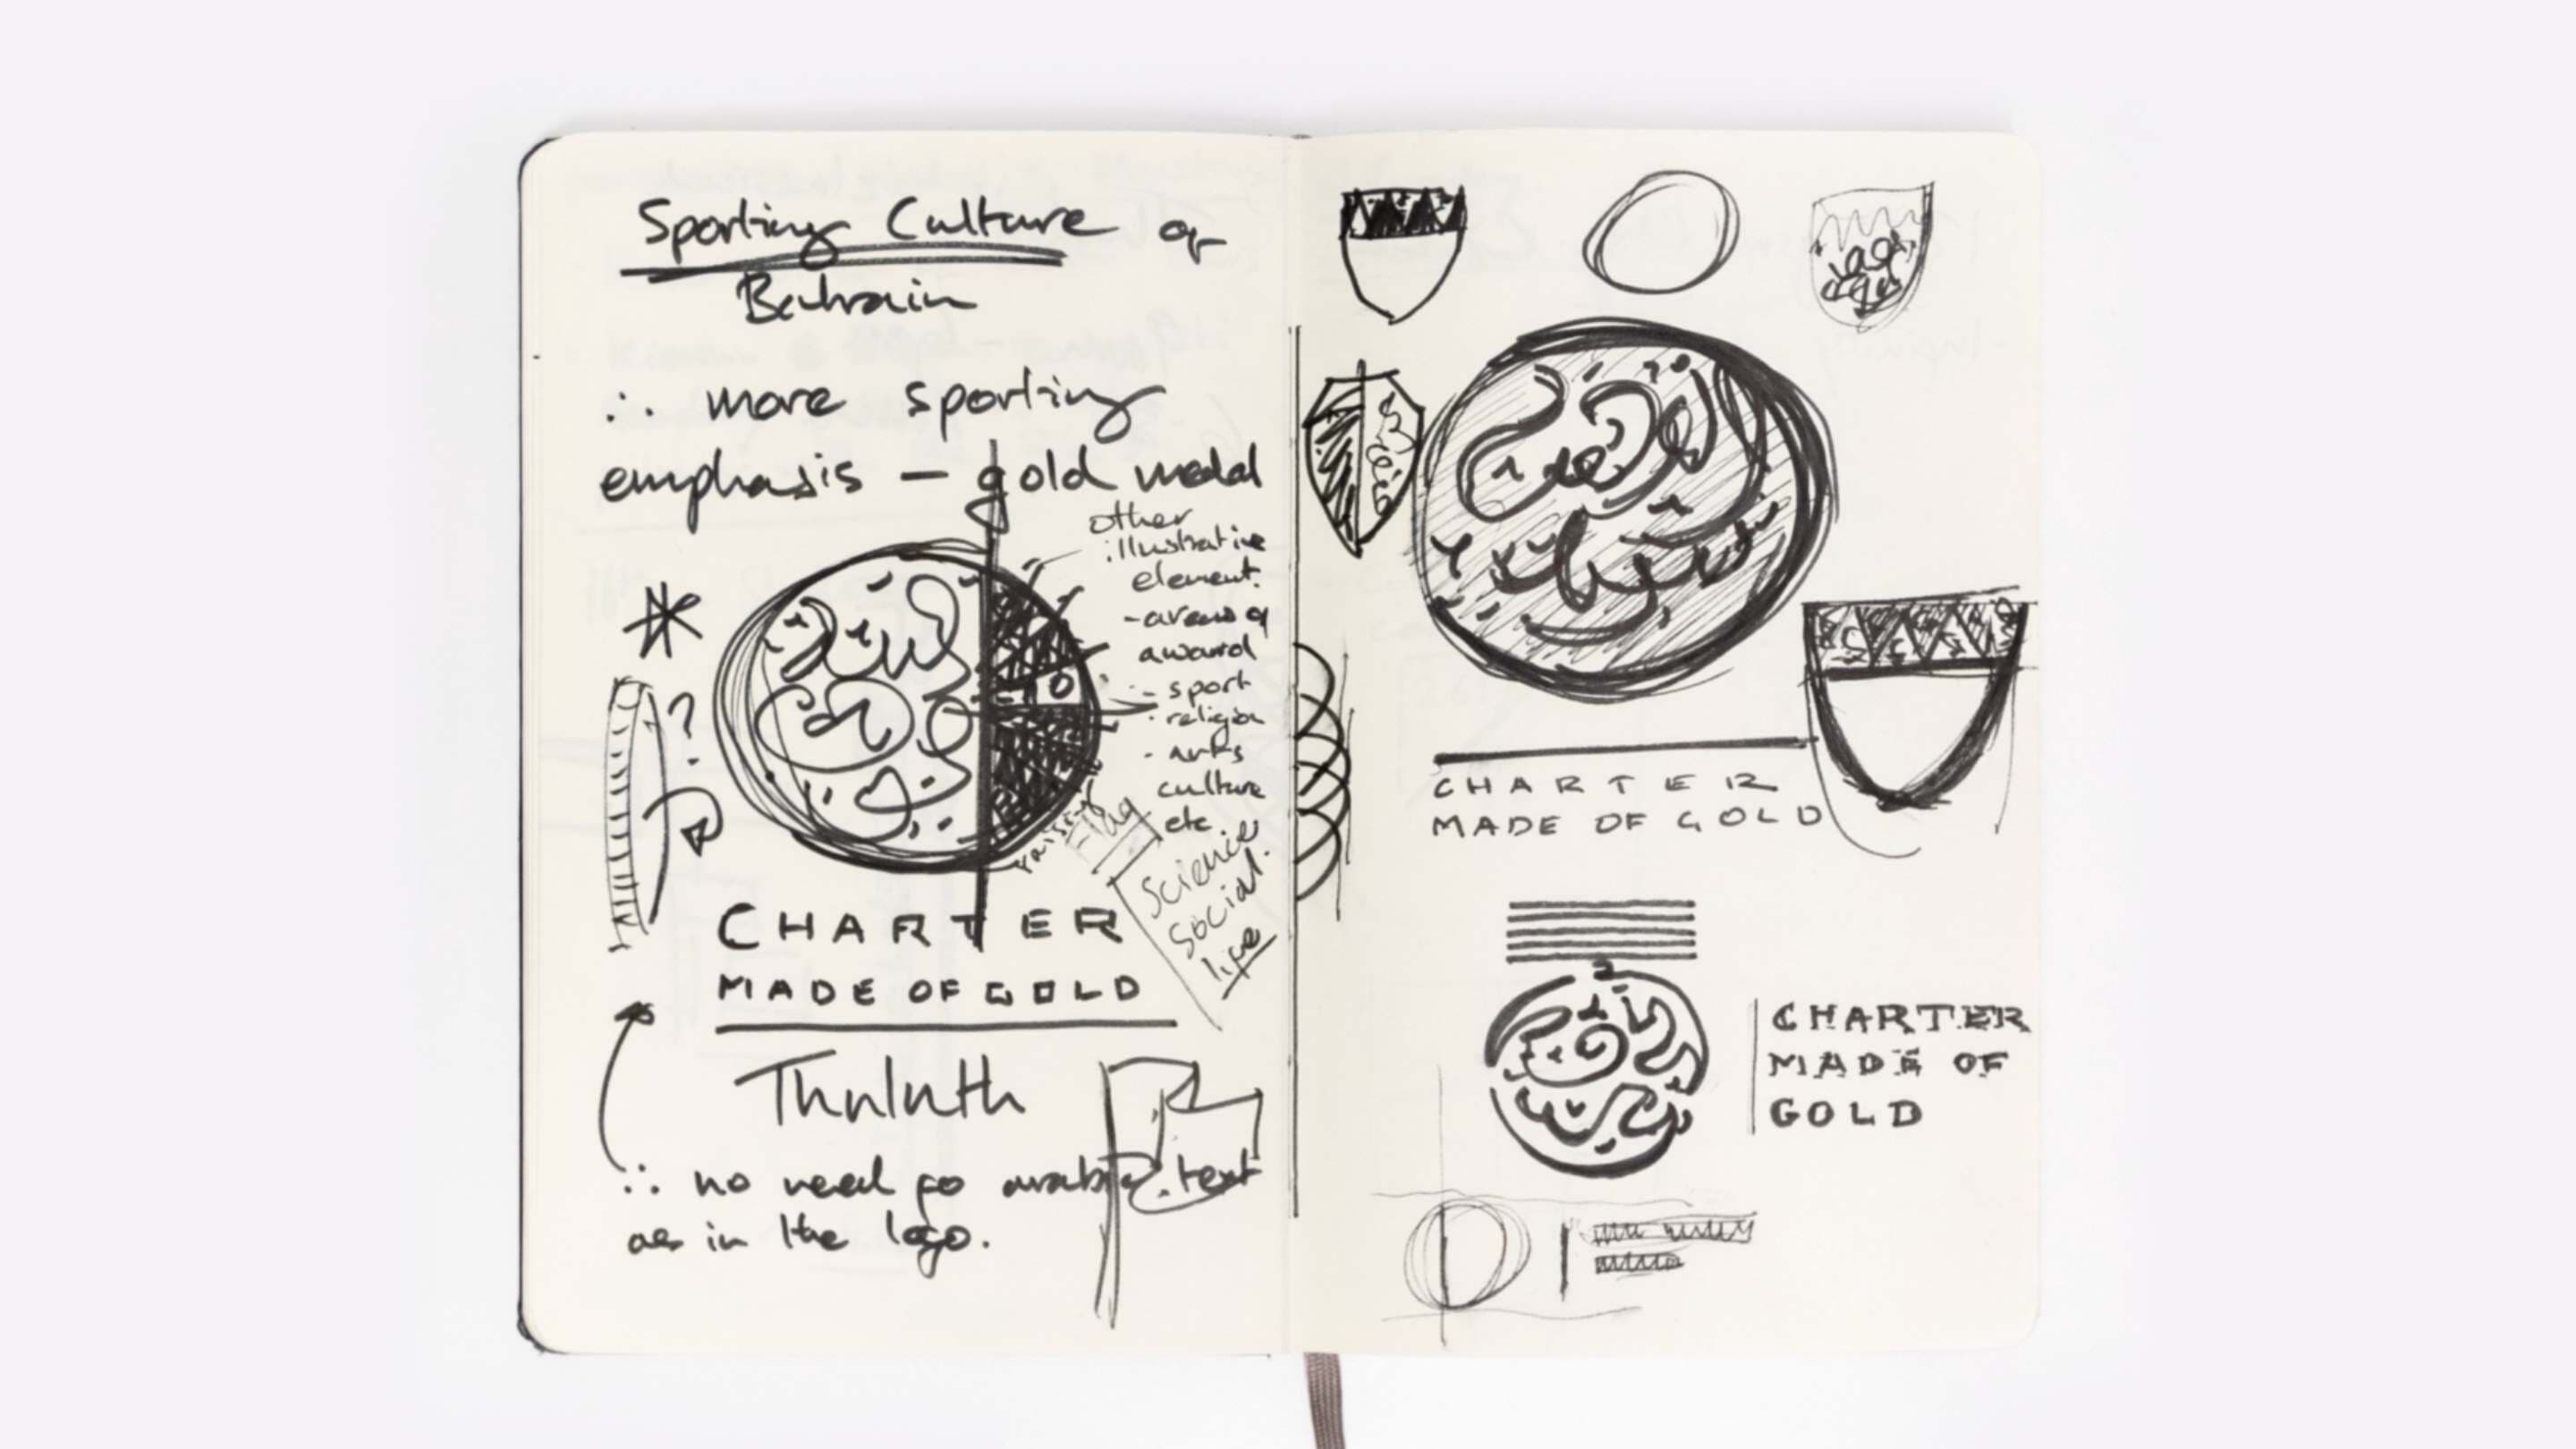 Sporting Culture of
Bahrain
∴ more sporting
emphasis — gold medal
other
illustrative
element.
- areas of
award
- sport
- religion
- arts
culture
etc.
Science
Social
life
raising
Flag
?
CHARTER
MADE OF GOLD
Thuluth
∴ no need fo arabic text
as in the logo.
CHARTER
MADE OF GOLD
CHARTER
MADE OF
GOLD